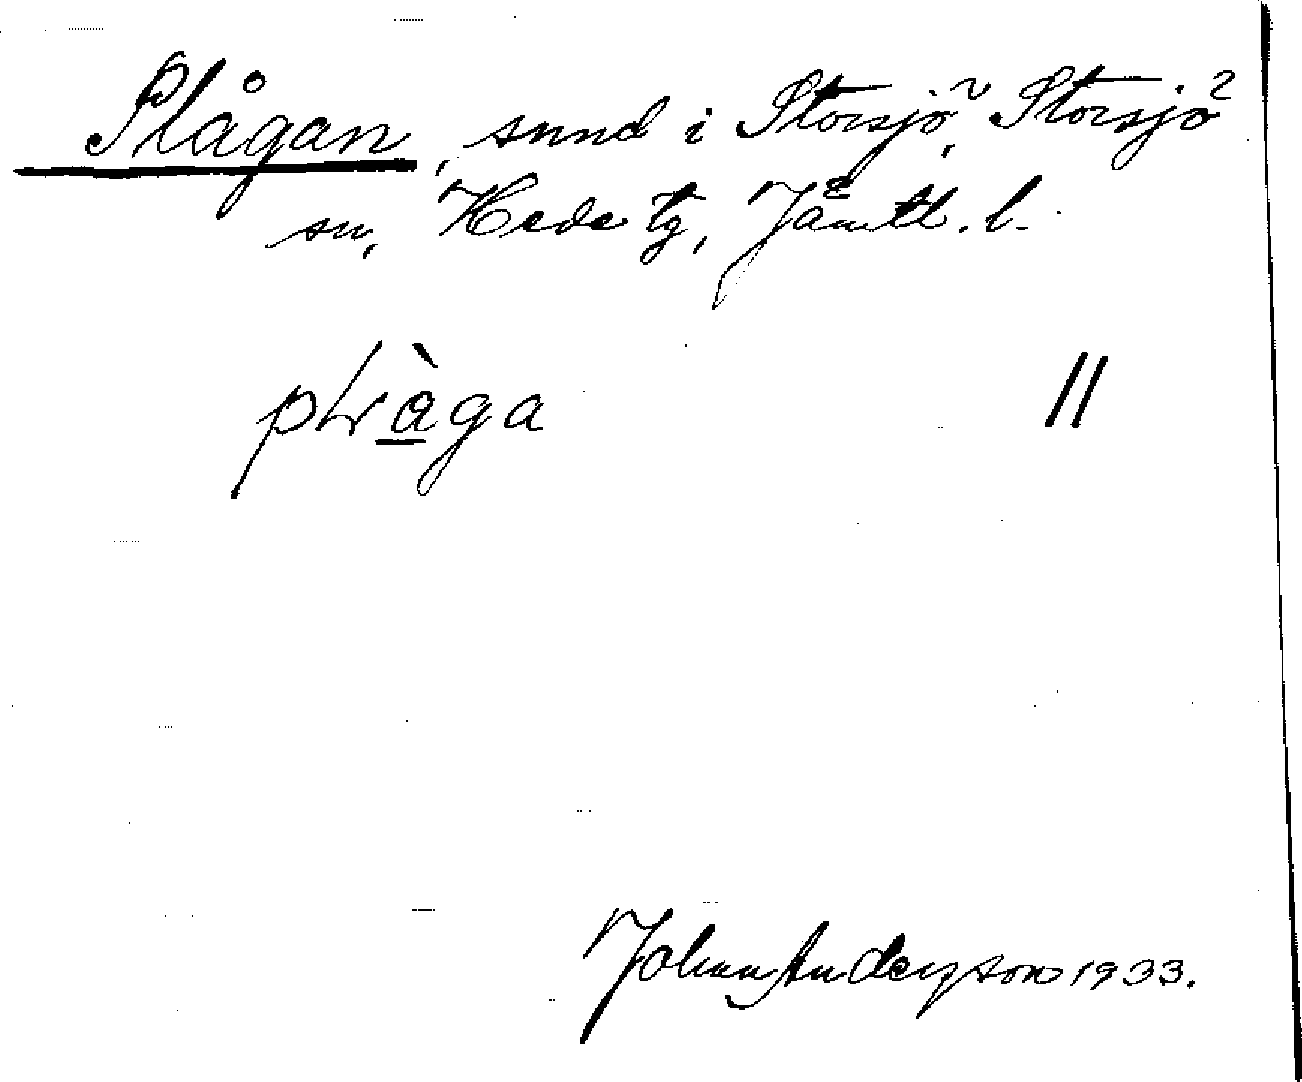 Plågan, sund i Storsjö, Storsjö
sn, Hede tg, Jämtl. l.
plàga //
Johan Anderzson 1933.